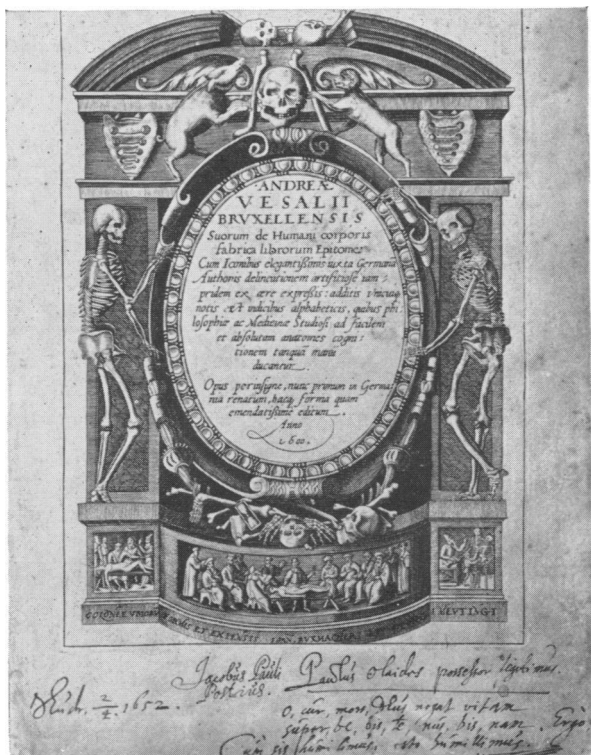 ANDREÆ
VESALII
BRVXELLENSIS
Suorum de Humani corporis
fabrica librorum Epitome
Cum Iconibus elegantißimis iuxta Germanā
Authoris delineationem artificiose iam
pridem ex ære expreßis: additis
notis et indicibus alphabeticis, quibus phi
losophiæ ac Medicinæ Studiosi ad facilem
et absolutam anatomes cogni:
tionem tanquā manu
ducantur.
Opus perinsigne, nunc primum in Germa
nia renatum, hacq; forma quam
emendatißime editum.
Anno
1600.
COLONIÆ ET EXPENSIS
Jacobus Pauli
Paulus possessor legitimus.
1652.
o, cur, mors, Deus negat vitam
super, be, bis, te nūs, bis, nam. Ergo
sis humillimus,